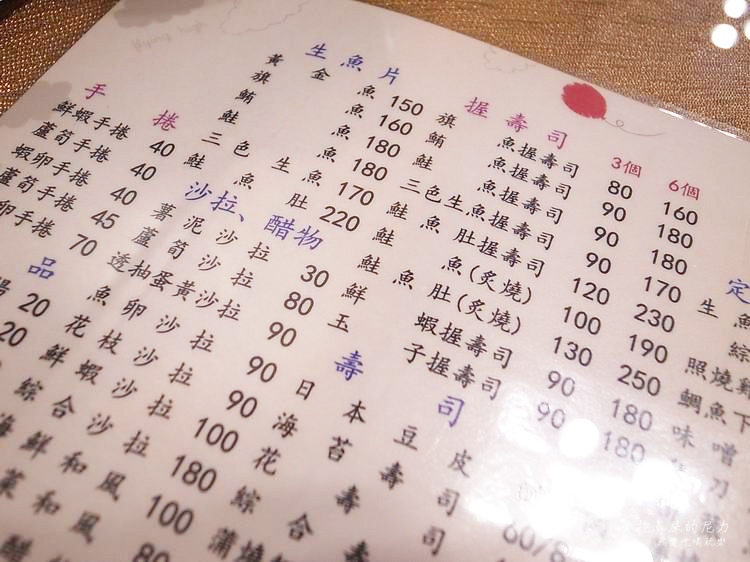 手捲
鮮蝦手捲 40
蘆筍手捲 40
蝦卵手捲 40
蘆筍手捲 45
卵手捲 70
品
湯 20
20
生魚片
黃金魚 150
旗魚 160
鮪魚 180
鮭魚 180
三色生魚 170
鮭魚肚 220
沙拉、醋物
薯泥沙拉 30
蘆筍沙拉 80
透抽蛋黃沙拉 90
魚卵沙拉 90
花枝沙拉 90
鮮蝦沙拉 100
綜合沙拉 180
海鮮和風 100
和風 80
醋
握壽司 3個 6個
旗魚握壽司 80 160
鮪魚握壽司 90 180
鮭魚握壽司 90 180
三色生魚握壽司 90 170
鮭魚肚握壽司 120 230
鮭魚(炙燒) 100 190
鮭魚肚(炙燒) 130 250
鮮蝦握壽司 90 180
玉子握壽司 90 180
壽司
日本豆皮
海苔壽司
花壽司
綜合
蒲燒
60/
定
生魚
綜
照燒雞
鯛魚下
味噌